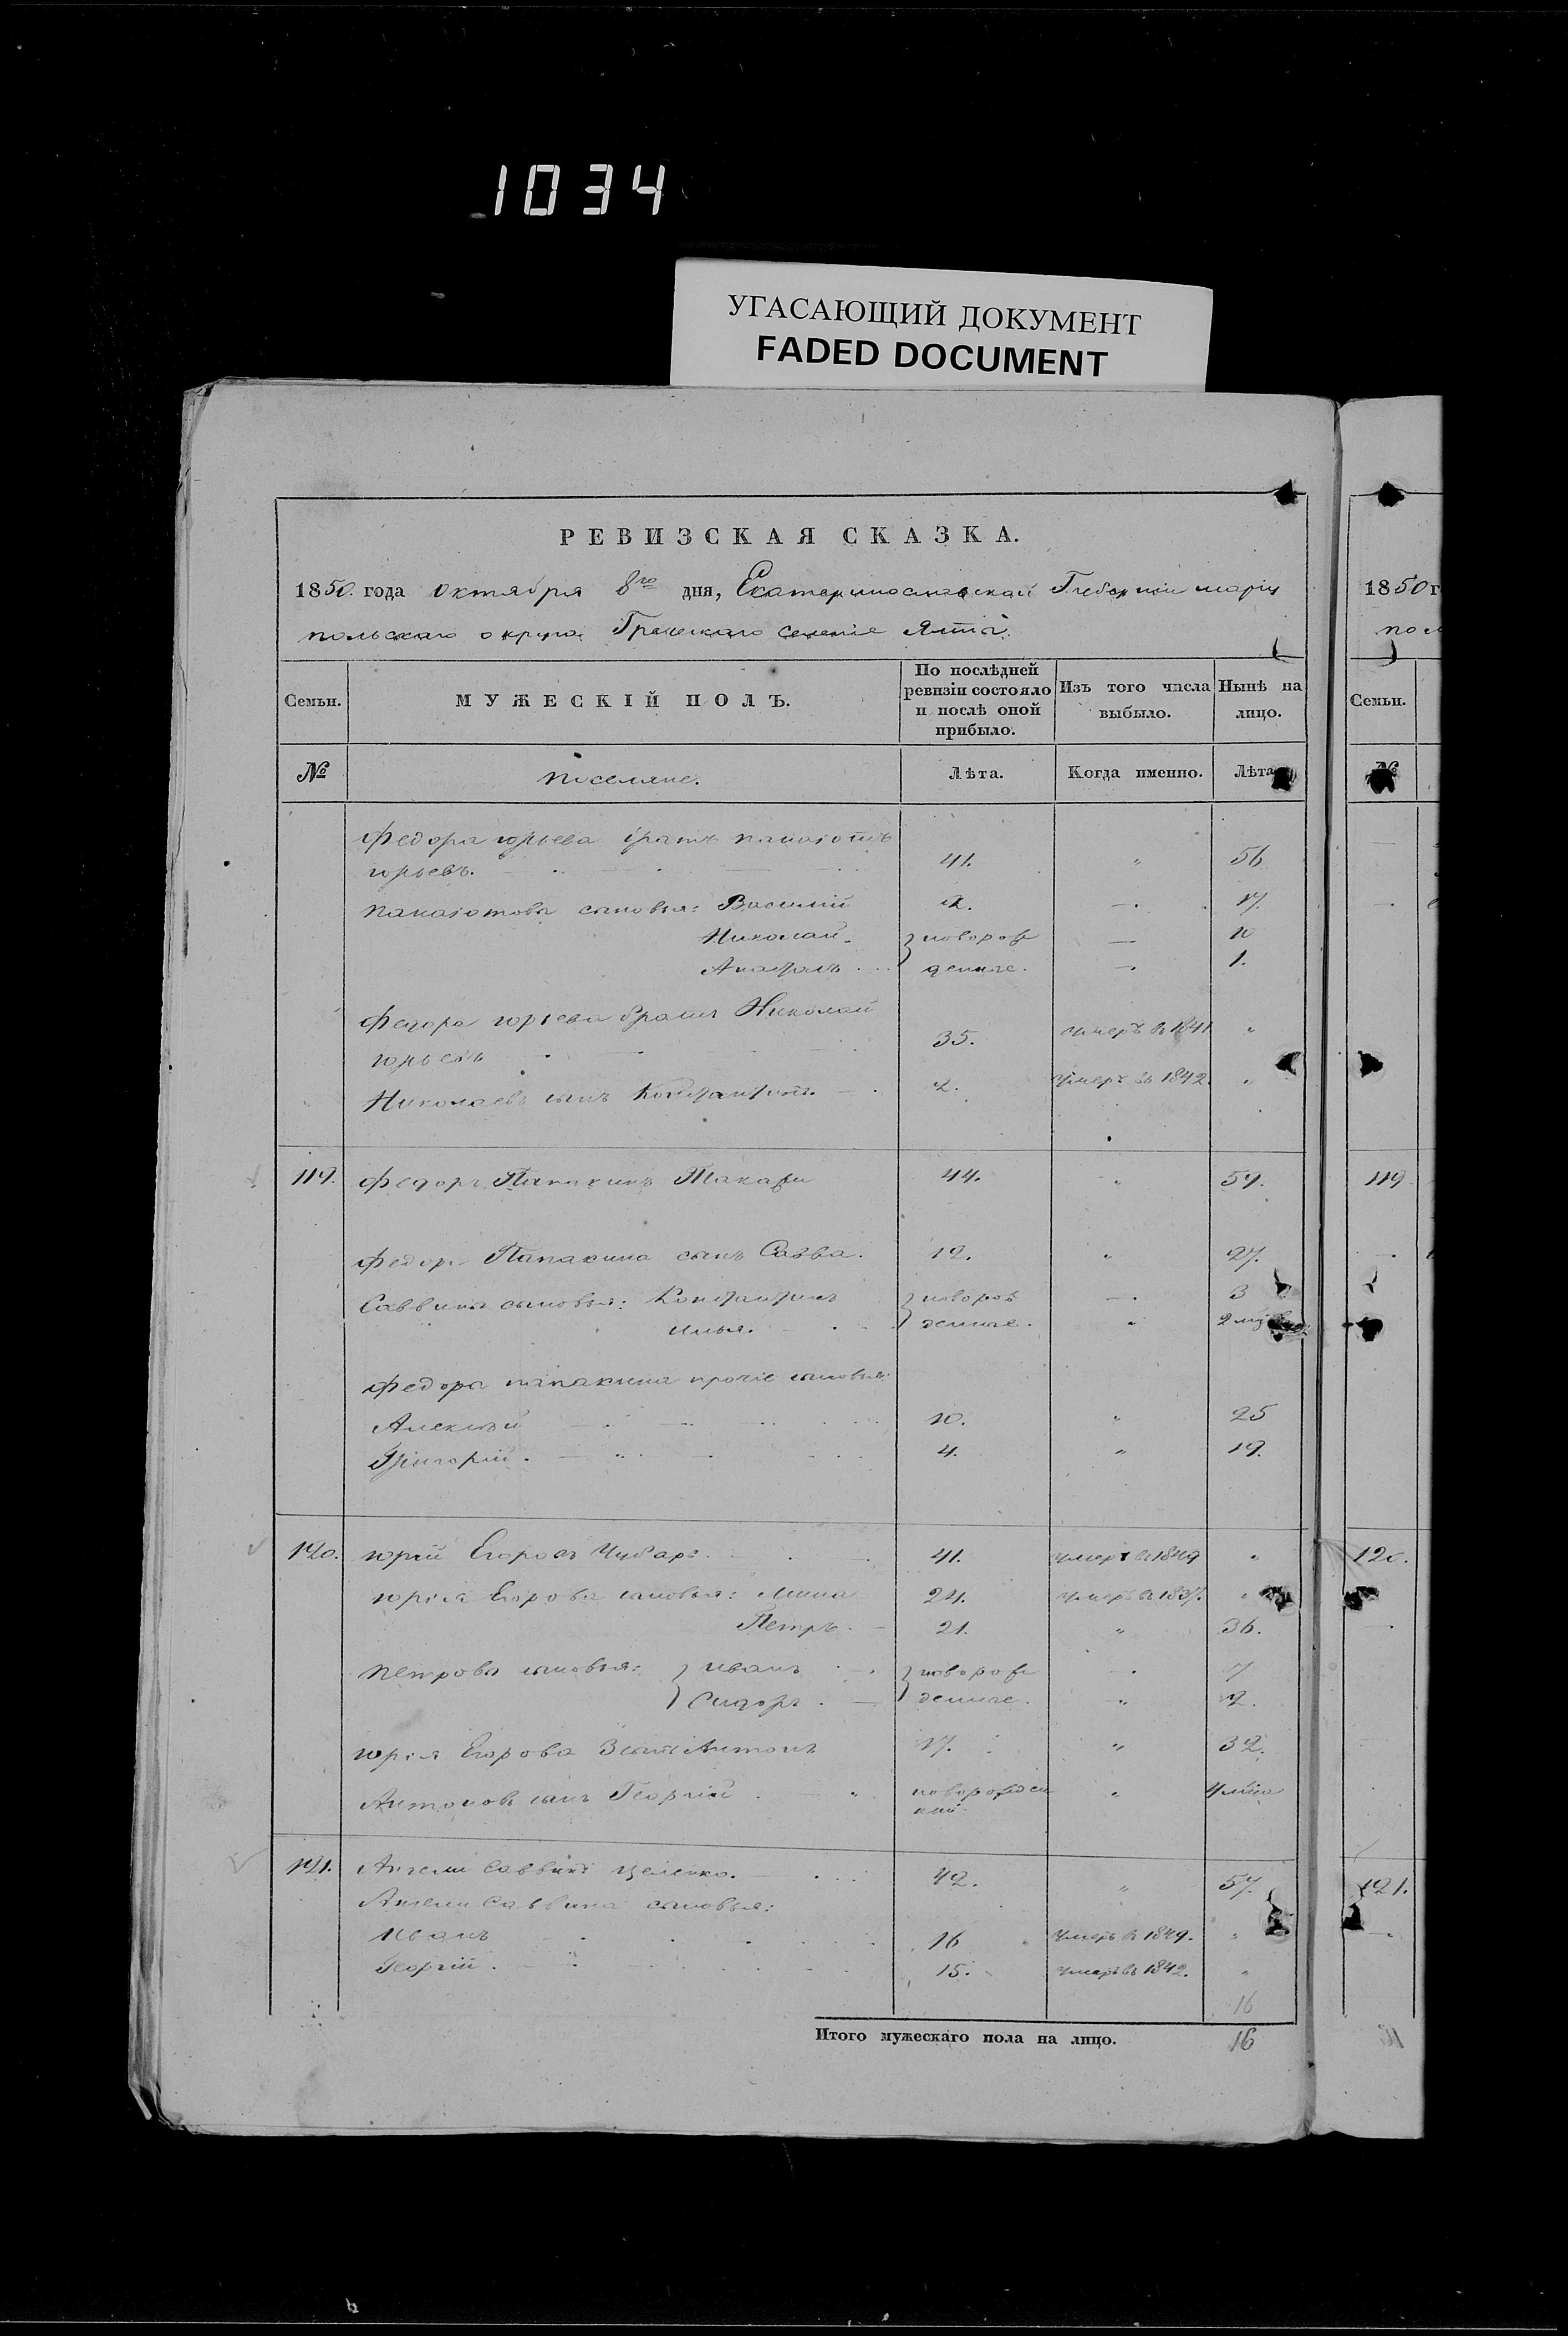 1034
УГАСАЮЩИЙ ДОКУМЕНТ
FADED DOCUMENT
РЕВИЗСКАЯ СКАЗКА.
1850. года Октября 8го дня, Екатеринославской Губерніи маріу
польскаго округа Греческаго селенія Ялты.
Семьи. МУЖЕСКІЙ ПОЛЪ. По послѣдней ревизіи состояло и послѣ оной прибыло. Изъ того числа выбыло. Нынѣ на лицо.
№ поселяне. Лѣта. Когда именно. Лѣта
Федора юрьева братъ панаіотъ
юрьевъ. 41. " 56
панаіотова сыновья: Василій 2. — 17.
Николай. } новорож — 10
деные. — 1.
Федора юрьева братъ Николай
юрьевъ 35. умеръ в 1841 "
Николаевъ сынъ Константинъ. 2. умеръ въ 1842. "
119. Федоръ Папакинъ 44. " 59.
Федор. Папакина сынъ Савва. 12. " 27.
Саввины сыновья: Константинъ } новорож — 3
илья. деные. " 2
Федора папакина прочіе сыновья:
Алексѣй 10. " 25
Григорій. 4. " 19.
120. юрій Егоровъ 41. умеръ в 1849 "
юрія Егорова сыновья: 24. умеръ в 1837. "
Петръ. 21. " 36.
Петровы сыновья: } иванъ } новорож — 7
Сидоръ. деные. " 2.
юрія Егорова 3 сынъ Антонъ 17. " 32.
Антоновъ сынъ Георгій новорожден " 4
ный.
121. Ангели Саввинъ 42. " 57.
Ангели Саввина сыновья:
Иванъ 16 умеръ в 1849. "
Георгій. 15. умеръ въ 1842. "
16
Итого мужескаго пола на лицо. 16
1850 г
пол
Семьи.
№
119
120.
121.